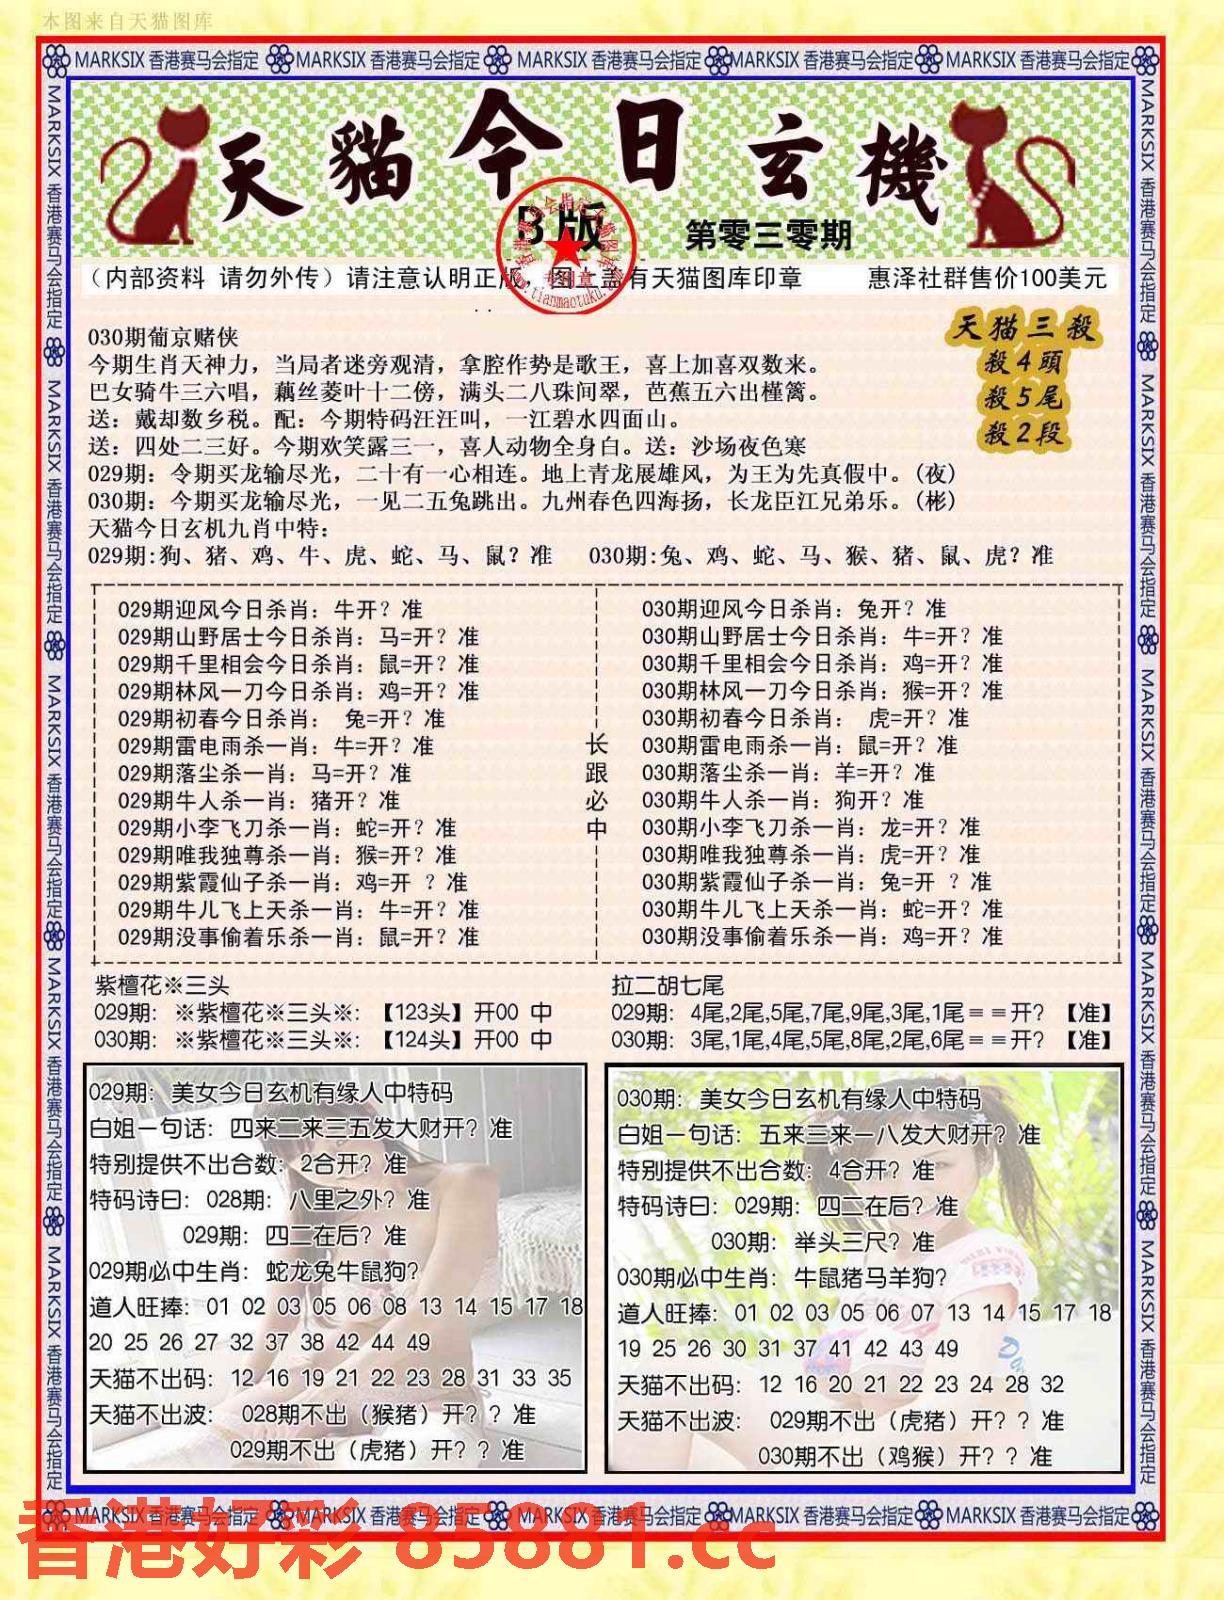 本图来自天猫图库
MARKSIX 香港赛马会指定 MARKSIX 香港赛马会指定 MARKSIX 香港赛马会指定 MARKSIX 香港赛马会指定 MARKSIX 香港赛马会指定
天貓今日玄機
B版
第零三零期
(内部资料 请勿外传) 请注意认明正版，图上盖有天猫图库印章 惠泽社群售价100美元
专用章
www.tianmaotuku.com
天猫三殺
殺4頭
殺5尾
殺2段
030期葡京赌侠
今期生肖天神力，当局者迷旁观清，拿腔作势是歌王，喜上加喜双数来。
巴女骑牛三六唱，藕丝菱叶十二傍，满头二八珠间翠，芭蕉五六出槿篱。
送：戴却数乡税。配：今期特码汪汪叫，一江碧水四面山。
送：四处二三好。今期欢笑露三一，喜人动物全身白。送：沙场夜色寒
029期：令期买龙输尽光，二十有一心相连。地上青龙展雄风，为王为先真假中。(夜)
030期：今期买龙输尽光，一见二五兔跳出。九州春色四海扬，长龙臣江兄弟乐。(彬)
天猫今日玄机九肖中特：
029期:狗、猪、鸡、牛、虎、蛇、马、鼠？准 030期:兔、鸡、蛇、马、猴、猪、鼠、虎？准
029期迎风今日杀肖：牛开？准
029期山野居士今日杀肖：马=开？准
029期千里相会今日杀肖：鼠=开？准
029期林风一刀今日杀肖：鸡=开？准
029期初春今日杀肖： 兔=开？准
029期雷电雨杀一肖：牛=开？准
029期落尘杀一肖：马=开？准
029期牛人杀一肖：猪开？准
029期小李飞刀杀一肖：蛇=开？准
029期唯我独尊杀一肖：猴=开？准
029期紫霞仙子杀一肖：鸡=开 ？准
029期牛儿飞上天杀一肖：牛=开？准
029期没事偷着乐杀一肖：鼠=开？准
长跟必中
030期迎风今日杀肖：兔开？准
030期山野居士今日杀肖：牛=开？准
030期千里相会今日杀肖：鸡=开？准
030期林风一刀今日杀肖：猴=开？准
030期初春今日杀肖： 虎=开？准
030期雷电雨杀一肖：鼠=开？准
030期落尘杀一肖：羊=开？准
030期牛人杀一肖：狗开？准
030期小李飞刀杀一肖：龙=开？准
030期唯我独尊杀一肖：虎=开？准
030期紫霞仙子杀一肖：兔=开 ？准
030期牛儿飞上天杀一肖：蛇=开？准
030期没事偷着乐杀一肖：鸡=开？准
紫檀花※三头
029期：※紫檀花※三头※：【123头】开00 中
030期：※紫檀花※三头※：【124头】开00 中
拉二胡七尾
029期：4尾,2尾,5尾,7尾,9尾,3尾,1尾＝＝开？【准】
030期：3尾,1尾,4尾,5尾,8尾,2尾,6尾＝＝开？【准】
029期：美女今日玄机有缘人中特码
白姐一句话：四来二来三五发大财开？准
特别提供不出合数：2合开？准
特码诗曰：028期：八里之外？准
029期：四二在后？准
029期必中生肖：蛇龙兔牛鼠狗？
道人旺捧：01 02 03 05 06 08 13 14 15 17 18
20 25 26 27 32 37 38 42 44 49
天猫不出码：12 16 19 21 22 23 28 31 33 35
天猫不出波： 028期不出（猴猪）开？？准
029期不出（虎猪）开？？准
030期：美女今日玄机有缘人中特码
白姐一句话：五来三来一八发大财开？准
特别提供不出合数：4合开？准
特码诗曰：029期：四二在后？准
030期：举头三尺？准
030期必中生肖：牛鼠猪马羊狗？
道人旺捧：01 02 03 05 06 07 13 14 15 17 18
19 25 26 30 31 37 41 42 43 49
天猫不出码：12 16 20 21 22 23 24 28 32
天猫不出波： 029期不出（虎猪）开？？准
030期不出（鸡猴）开？？准
MARKSIX 香港赛马会指定 MARKSIX 香港赛马会指定 MARKSIX 香港赛马会指定 MARKSIX 香港赛马会指定 MARKSIX 香港赛马会指定
MARKSIX 香港赛马会指定 MARKSIX 香港赛马会指定 MARKSIX 香港赛马会指定 MARKSIX 香港赛马会指定 MARKSIX 香港赛马会指定
MARKSIX 香港赛马会指定 MARKSIX 香港赛马会指定 MARKSIX 香港赛马会指定 MARKSIX 香港赛马会指定 MARKSIX 香港赛马会指定
香港好彩 85881.cc